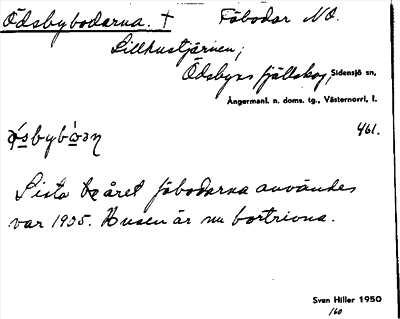 Ödsbybodarna. † Fäbodar NO.
Lillhustjärnen,
Ödsbyns fjällskog, Sidensjö sn,
Ångermanl. n. doms. tg., Västernorrl. l.
461.
Sista året fäbodarna användes
var 1935. Husen är nu bortrivna.
Sven Hiller 1950
160